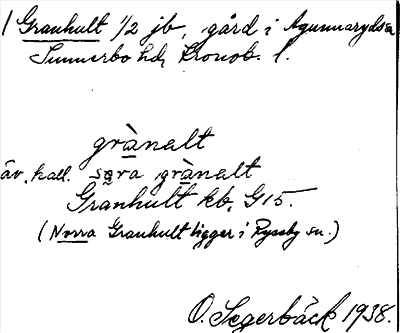 1 Granhult 1/2 jb, gård i Agunnaryds sn
Sunnerbo hd, Kronob. l.
grànalt
äv. kall. søra grànalt
Granhult kb. G15.
(Norra Granhult ligger i Ryssby sn.)
O. Segerbäck 1938.